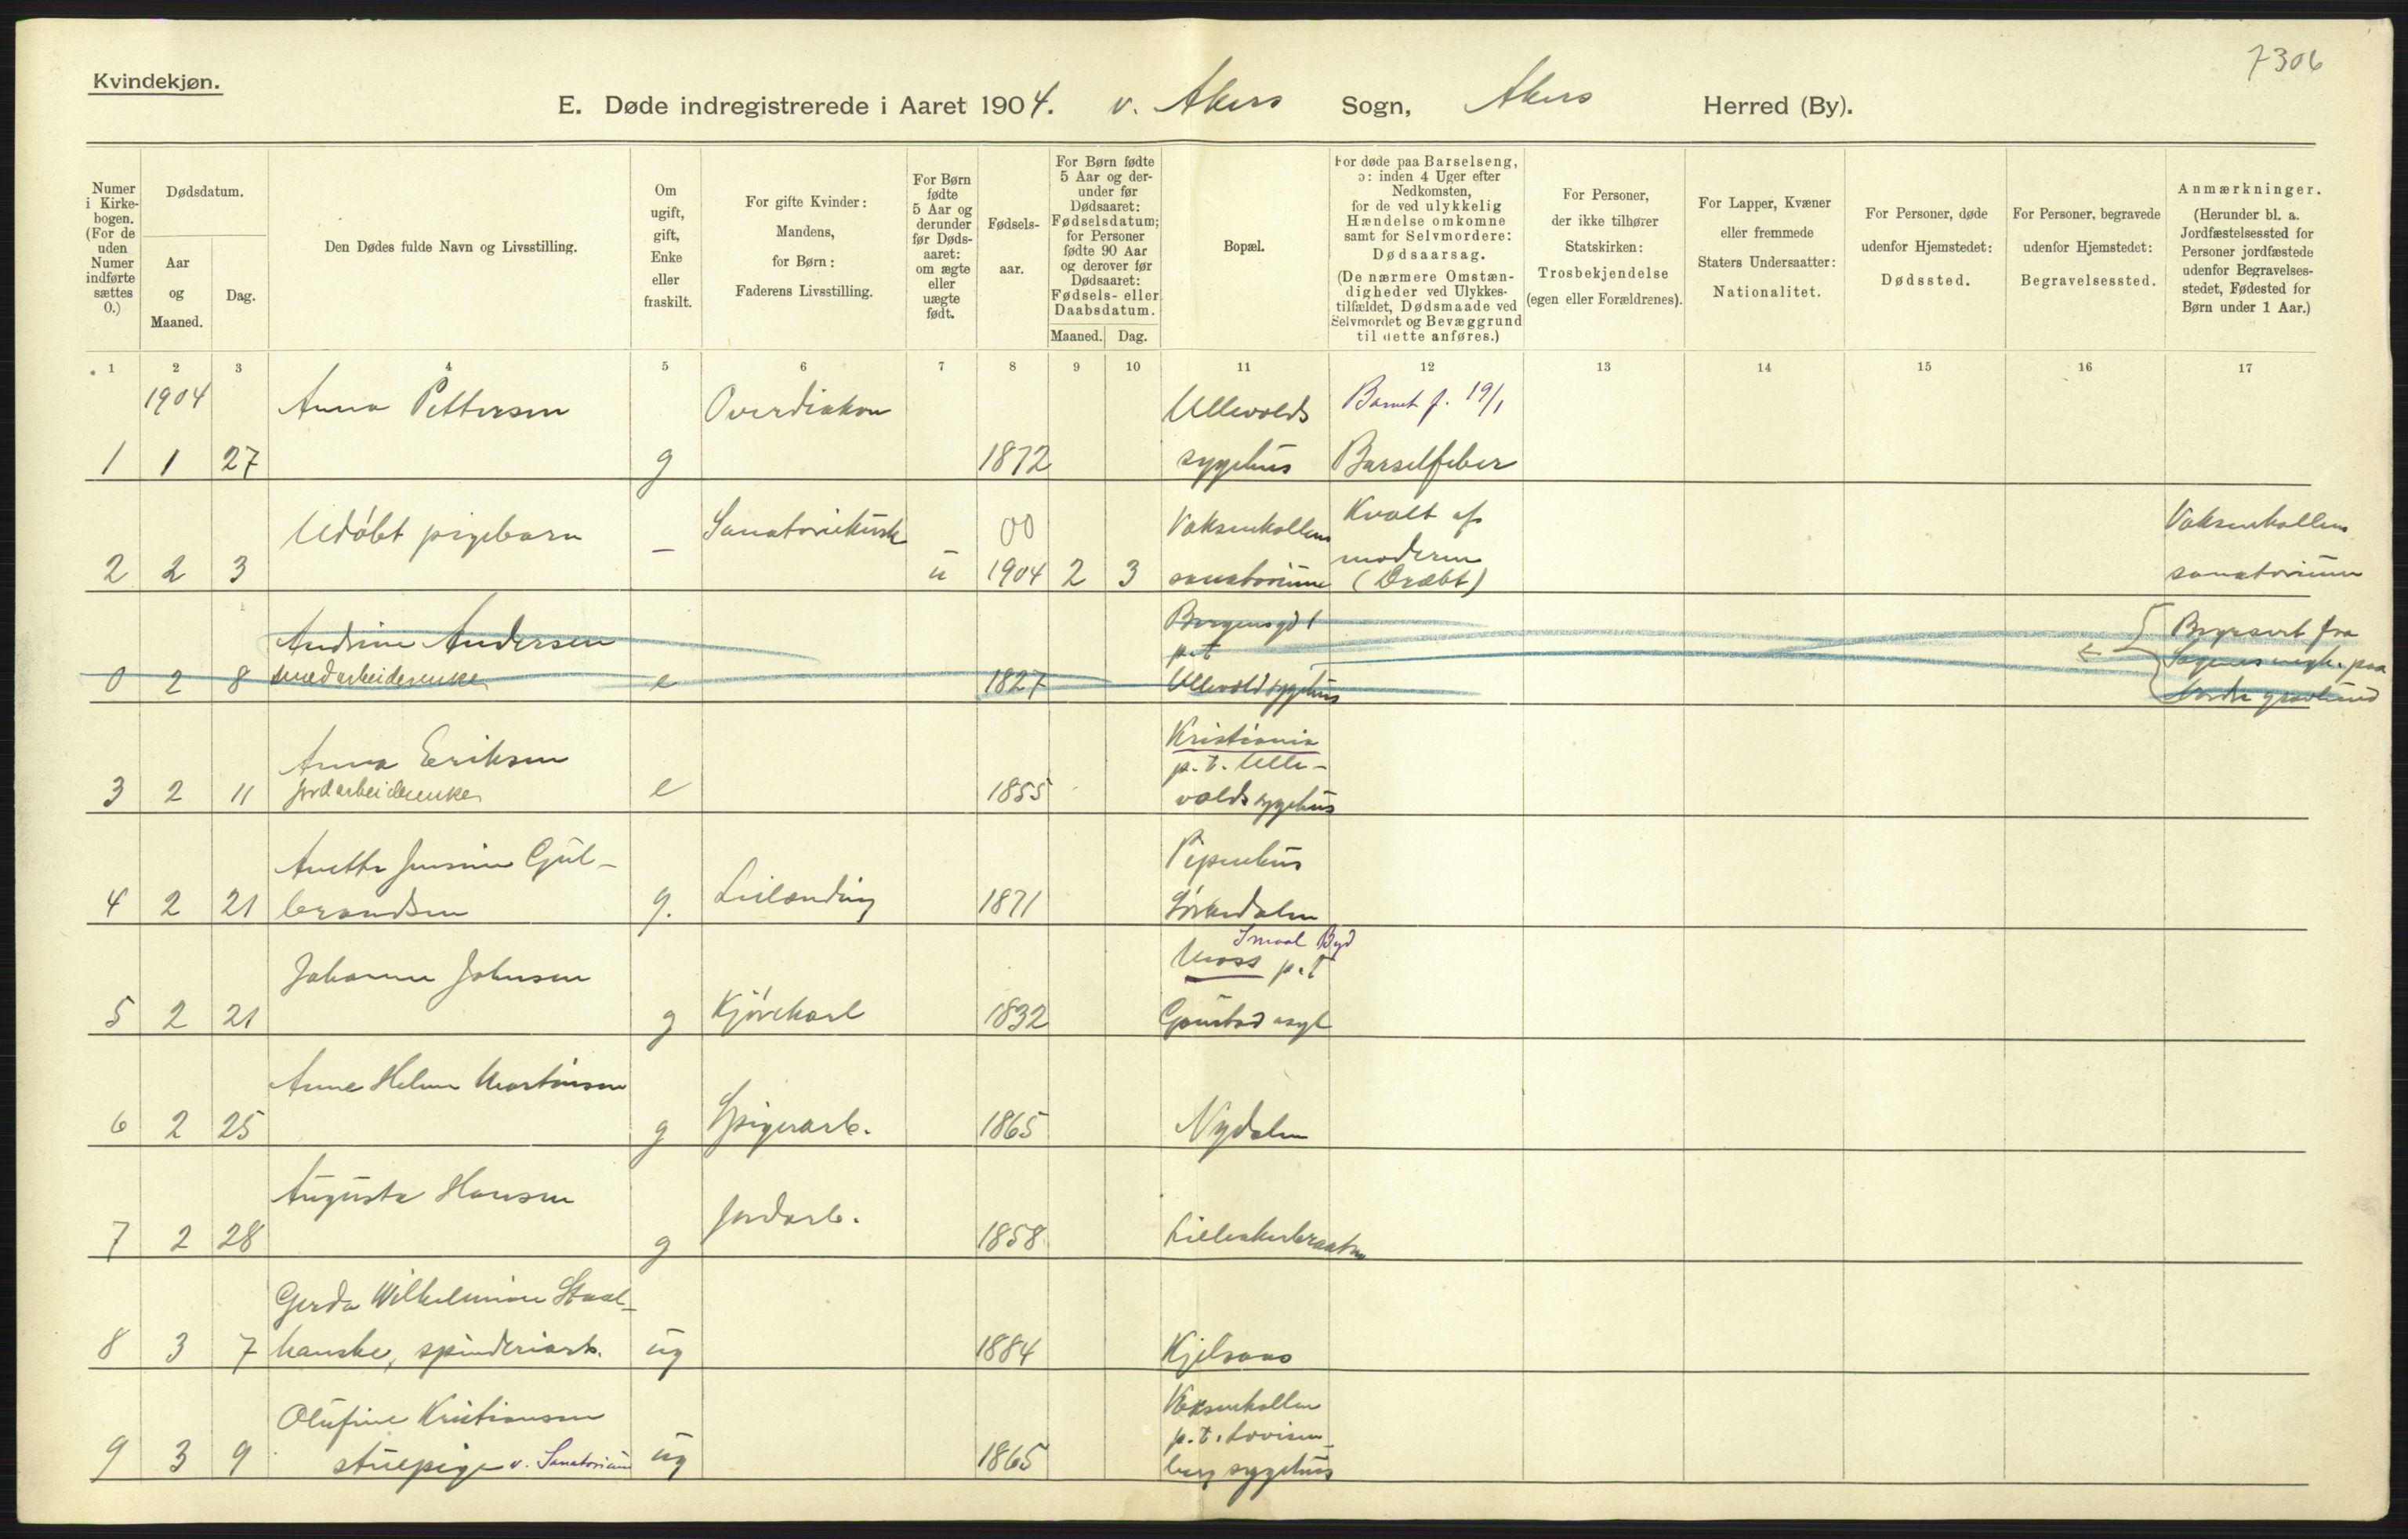 7306
Kvindekjøn.
E. Døde indregistrerede i Aaret 1904. v. Akers Sogn, Akers Herred (By).
Numer i Kirkebogen. (For de uden Numer indførte sættes 0.)
Dødsdatum.
Aar og Maaned.
Dag.
Den Dødes fulde Navn og Livsstilling.
Om ugift, gift, Enke eller fraskilt.
For gifte Kvinder: Mandens, for Børn: Faderens Livsstilling.
For Børn fødte 5 Aar og derunder før Dødsaaret: om ægte eller uægte født.
Fødselsaar.
For Børn fødte 5 Aar og derunder før Dødsaaret: Fødselsdatum; for Personer fødte 90 Aar og derover før Dødsaaret: Fødsels- eller Daabsdatum.
Maaned. Dag.
Bopæl.
For døde paa Barselseng, ɔ: inden 4 Uger efter Nedkomsten, for de ved ulykkelig Hændelse omkomne samt for Selvmordere: Dødsaarsag. (De nærmere Omstændigheder ved Ulykkestilfældet, Dødsmaade ved Selvmordet og Bevæggrund til dette anføres.)
For Personer, der ikke tilhører Statskirken: Trosbekjendelse (egen eller Forældrenes).
For Lapper, Kvæner eller fremmede Staters Undersaatter: Nationalitet.
For Personer, døde udenfor Hjemstedet: Dødssted.
For Personer, begravede udenfor Hjemstedet: Begravelsessted.
Anmærkninger. (Herunder bl. a. Jordfæstelsessted for Personer jordfæstede udenfor Begravelsesstedet, Fødested for Børn under 1 Aar.)
1 2 3 4 5 6 7 8 9 10 11 12 13 14 15 16 17
1904 Anna Pettersen Overdiakon Ullevolds Barnet f. 19/1
1 1 27 g 1872 sygehus Barselfeber
Udøbt pigebarn Sanatoriekusk 00 Voksenkollens Kvalt af Voksenkollens
moderen
2 2 3 — u 1904 2 3 sanatorium (Dræbt) sanatorium
Andrine Andersen Borgensgd 1 Begravet fra
p.t. Sagenes
0 2 8 smedarbeiderenke e 1827 Ullevold sygehus Nordre gravlund
Anna Eriksen Kristiania
p. t. Ulle-
3 2 11 jordarbeiderenke e 1855 volds sygehus
Anette Jensine Gul- Pipenhus
4 2 21 brandsen g. Leilænding 1871 Sørkedalen
Smaal Byd
Johanne Johnsen Moss p. t
5 2 21 g Kjørekarl 1832 Gaustad asyl
Anne Helene Martinsen
6 2 25 g Spigerarb. 1865 Nydalen
Augusta Hansen
7 2 28 g Jordarb. 1858 Lilleakerbraaten
Gerda Wilhelmine Staal-
8 3 7 hanske, spinderiarb. ug 1884 Kjelsaas
Olufine Kristiansen Voksenkollen
p. t. Lovisen-
9 3 9 stuepige v. Sanatorium ug 1865 berg sygehus